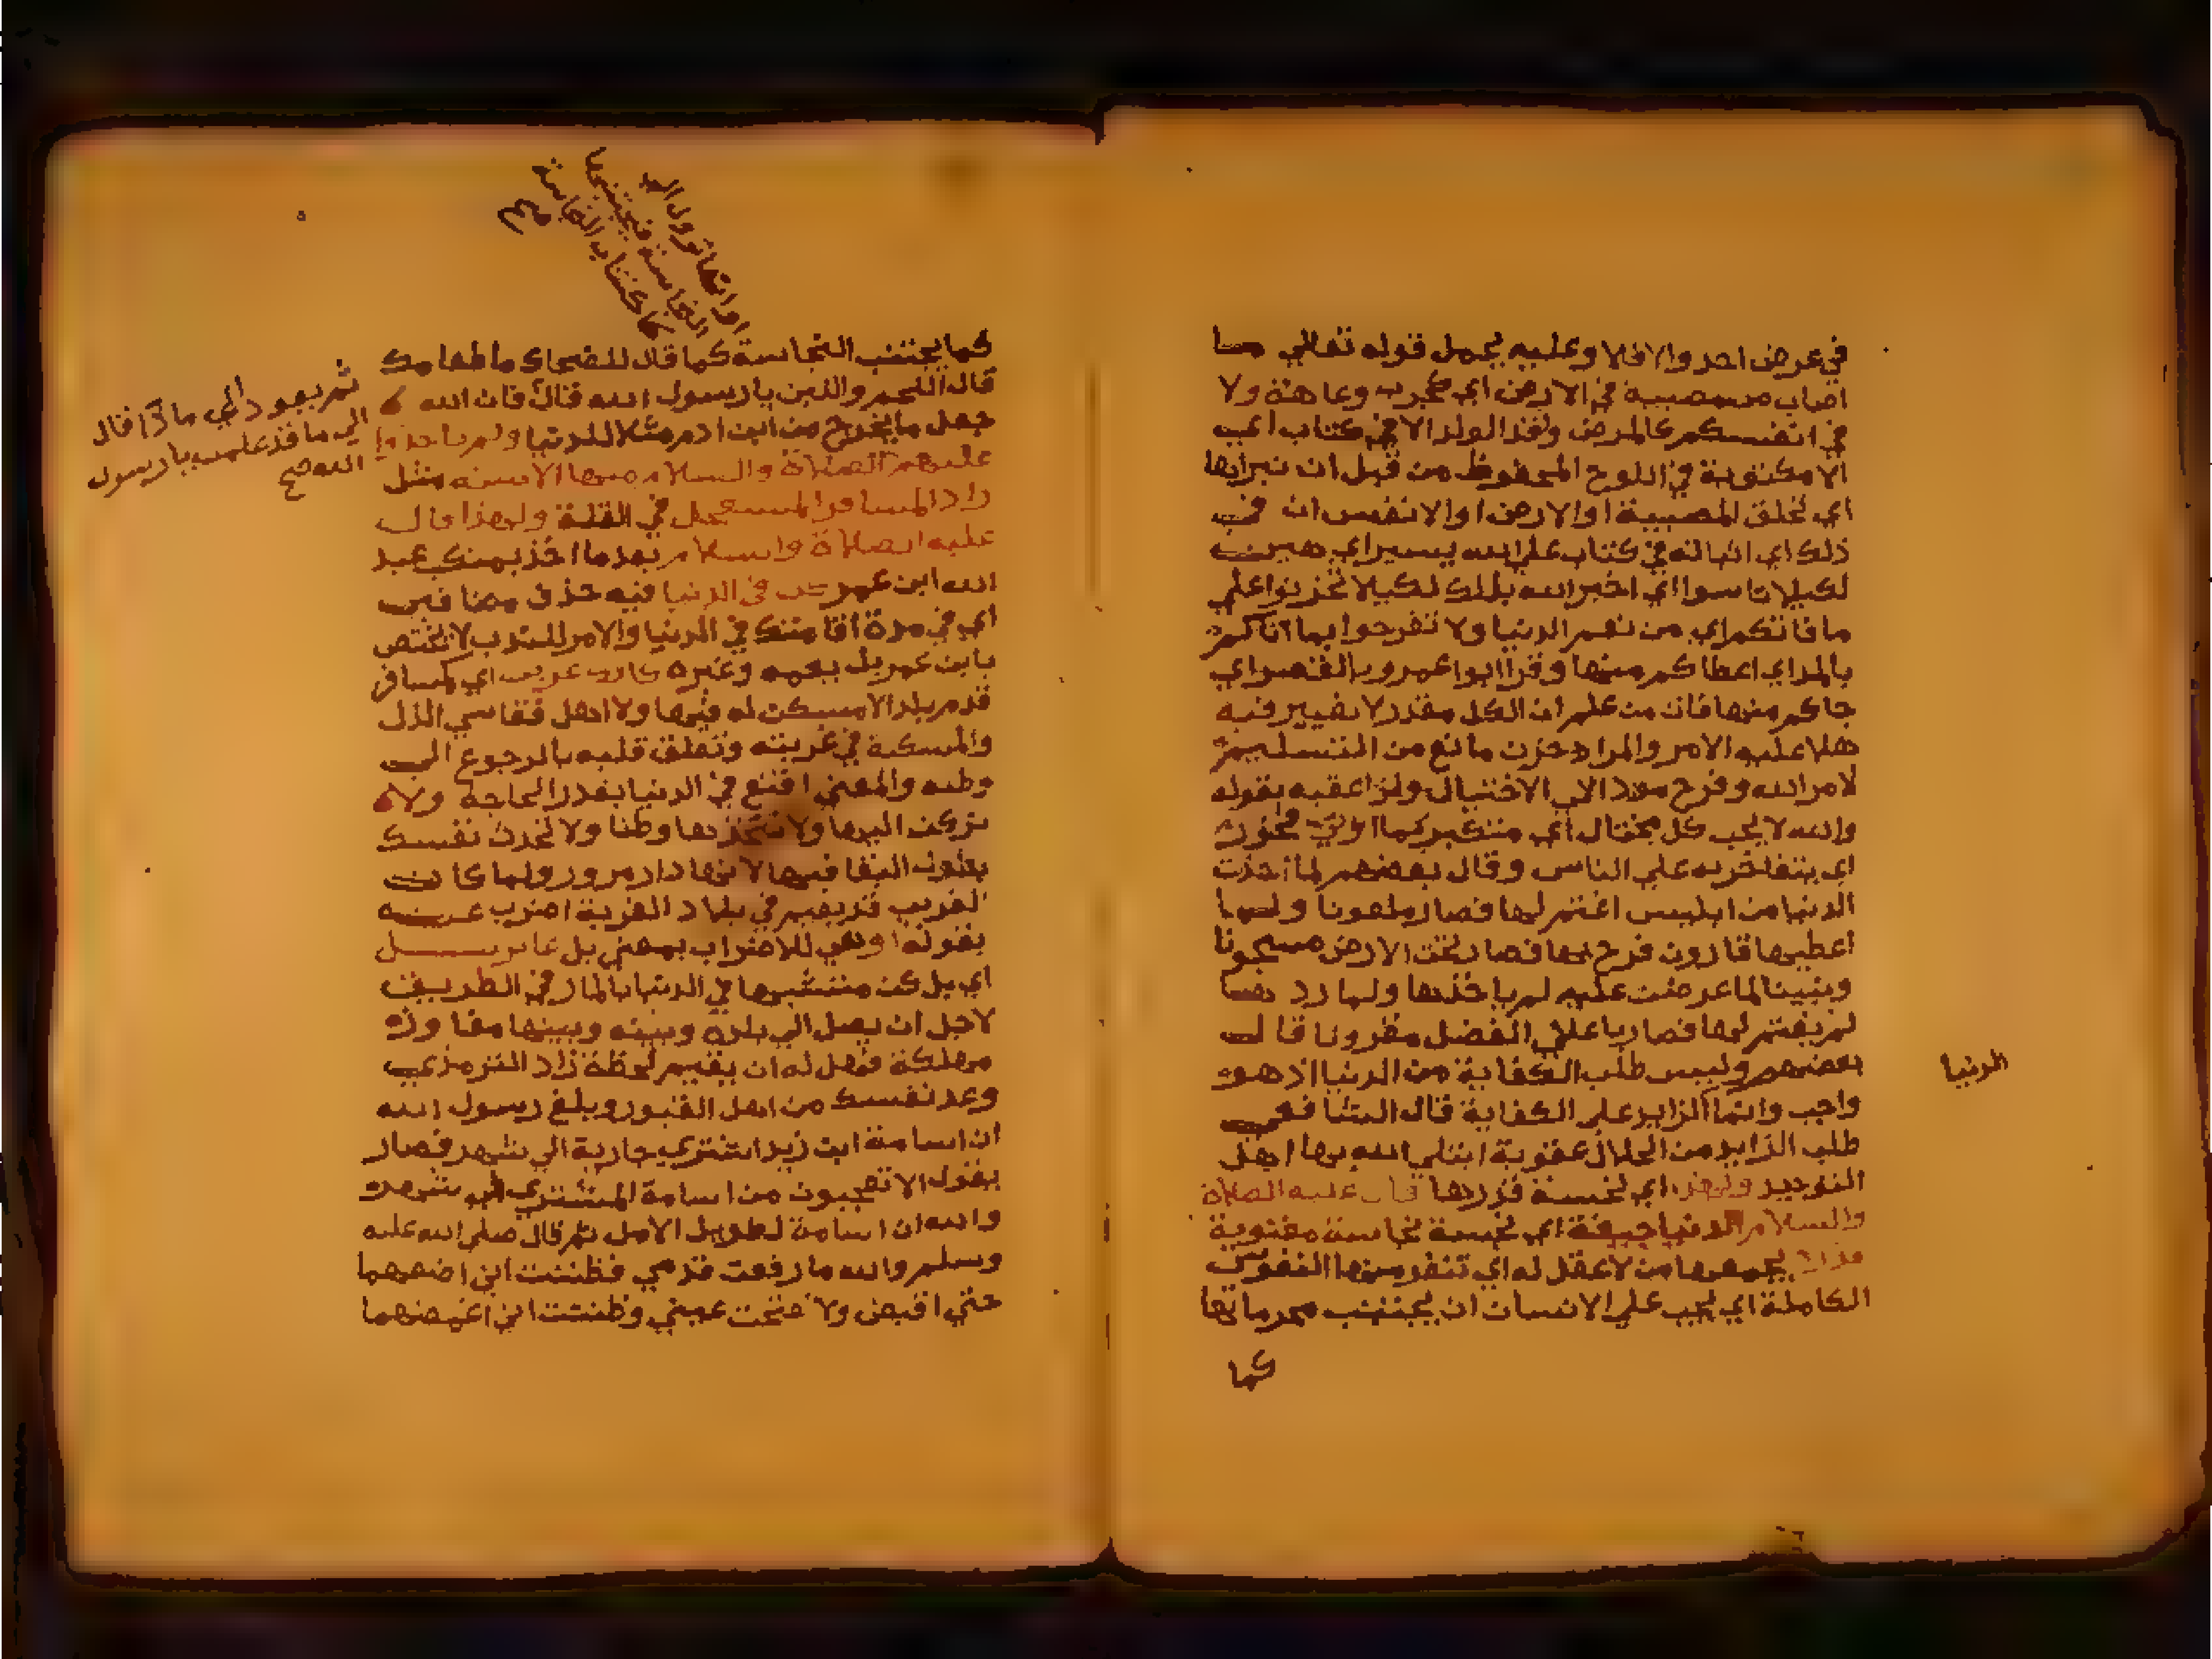 في عرض احد والا فلا وعليه يحمل قوله تعالي ما
اصاب من مصيبة في الارض اي بجدب وعاهة ولا
في انفسكم كالمرض وفقد الولد الا في كتاب اي
الا مكتوبة في اللوح المحفوظ من قبل ان نبراها
اي نخلق المصيبة او الارض او الانفس ان في
ذلك اي اثباته في كتاب علي الله يسير اي هين
لكيلا تاسوا اي اخبر الله بذلك لكيلا تحزنوا علي
ما فاتكم اي من نعم الدنيا ولا تفرحوا بما اتاكم
بالمد اي اعطاكم منها وقرا ابوا عمرو بالقصر اي
جاكم منها فان من علم ان الكل مقدر لا تغيير فيه
هلا عليه الامر والمراد حزن مانع من التسليم
لامر الله وفرح مود الي الاختيال ولذا عقبه بقوله
والله لا يحب كل مختال اي متكبر بما اوتي فخور
اي يتفاخر به علي الناس وقال بعضهم لما اخذت
الدنيا من ابليس اغتم لها فصار ملعونا ولما
اعطيها قارون فرح بها فصار تحت الارض مسجونا
ونبينا لما عرضت عليه لم ياخذها ولما ردها
لم يغتم لها فصار باعلي الفضل مقرونا قال
بعضهم وليس طلب الكفاية من الدنيا اذ هو
الدنيا
واجب وانما الزايد علي الكفاية قال الشافعي
طلب الزايد من الحلال عقوبة ابتلي الله بها اهل
التوحيد ولهذا اي لخسة قدرها قال عليه الصلاة
والسلام الدنيا جيفة اي نجسة نجاسة معنوية
يجمعها من لا عقل له اي تنفر منها النفوس
الكاملة اي يجب علي الانسان ان يجتنب محرماتها
كما
النجاسة فيجتنبها
كاجتناب النجاسة
كما يجتنب النجاسة كما قال للضحاك ما طعامك
قال اللحم واللبن يا رسول الله قال فان الله
ثم يعود الي ماذا قال
الي ما قد علمت يا رسول
الله صح
جعل ما يخرج من ابن ادم مثلا للدنيا ولم ياخذوا
عليهم الصلاة والسلام منها الا مثل
زاد المسافر المستعجل في القلة ولهذا قال
عليه الصلاة والسلام بعدما اخذ بمنكب عبد
الله ابن عمر كن في الدنيا فيه حذف مضاف
اي في مدة اقامتك في الدنيا والامر للندب لا يختص
بابن عمر بل يعمه وغيره كانك غريب اي كمسافر
قدم بلد الا مسكن له فيها ولا اهل فقاسي الذل
والمسكنة في غربته وتعلق قلبه بالرجوع الي
وطنه والمعني اقتنع في الدنيا بقدر الحاجة ولا
تركن اليها ولا تتخذها وطنا ولا تحدث نفسك
بطول البقا فيها لانها دار مرور ولما كان
الغريب قد يقيم في بلاد الغربة اضرب عنه
بقوله او هي للاضراب بمعني بل عابر سبيل
اي بل كن متشبها في الدنيا بالمار في الطريق
لاجل ان يصل الي بلده وبينه وبينها مفاوز
مهلكة فهل له ان يقيم لحظة زاد الترمذي
وعد نفسك من اهل القبور وبلغ رسول الله
ان اسامة ابن زيد اشتري جارية الي شهر فصار
يقول الا تعجبون من اسامة المشتري الي شهر
والله ان اسامة لطويل الامل ثم قال صلي الله عليه
وسلم والله ما رفعت قدمي فظننت اني اضعهما
حتي اقبض ولا فتحت عيني وظننت اني اغمضهما